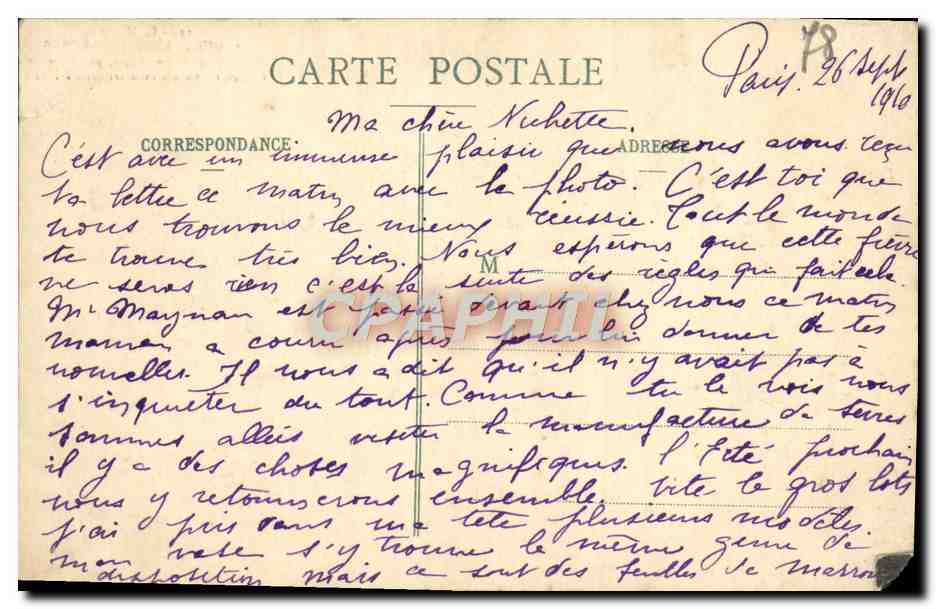 78
Paris. 26 Sept
1910
CARTE POSTALE
Ma chère Nichette.
CORRESPONDANCE
ADRESSE
C'est avec un immense plaisir que nous avons reçu
ta lettre ce matin avec la photo. C'est toi que
nous trouvons le mieux réussie. Tout le monde
te trouve très bien. Nous espérons que cette fièvre
M
ne seras rien c'est la suite des règles qui fait cela.
Mr Maynan est passé devant chez nous ce matin
CPAPHIL
maman a courru après pour lui donner de tes
nouvelles. Il nous a dit qu'il n'y avait pas à
s'inquiéter du tout. Comme tu le vois nous
sommes allées visiter la manufacture de Sevres
il y a des choses magnifiques. l'Eté prochain
nous y retournerons ensemble. vite le gros lots
j'ai pris dans ma tete plusieurs modèles
mon vase s'y trouve le même genre de
disposition mais ce sont des feuilles de marron